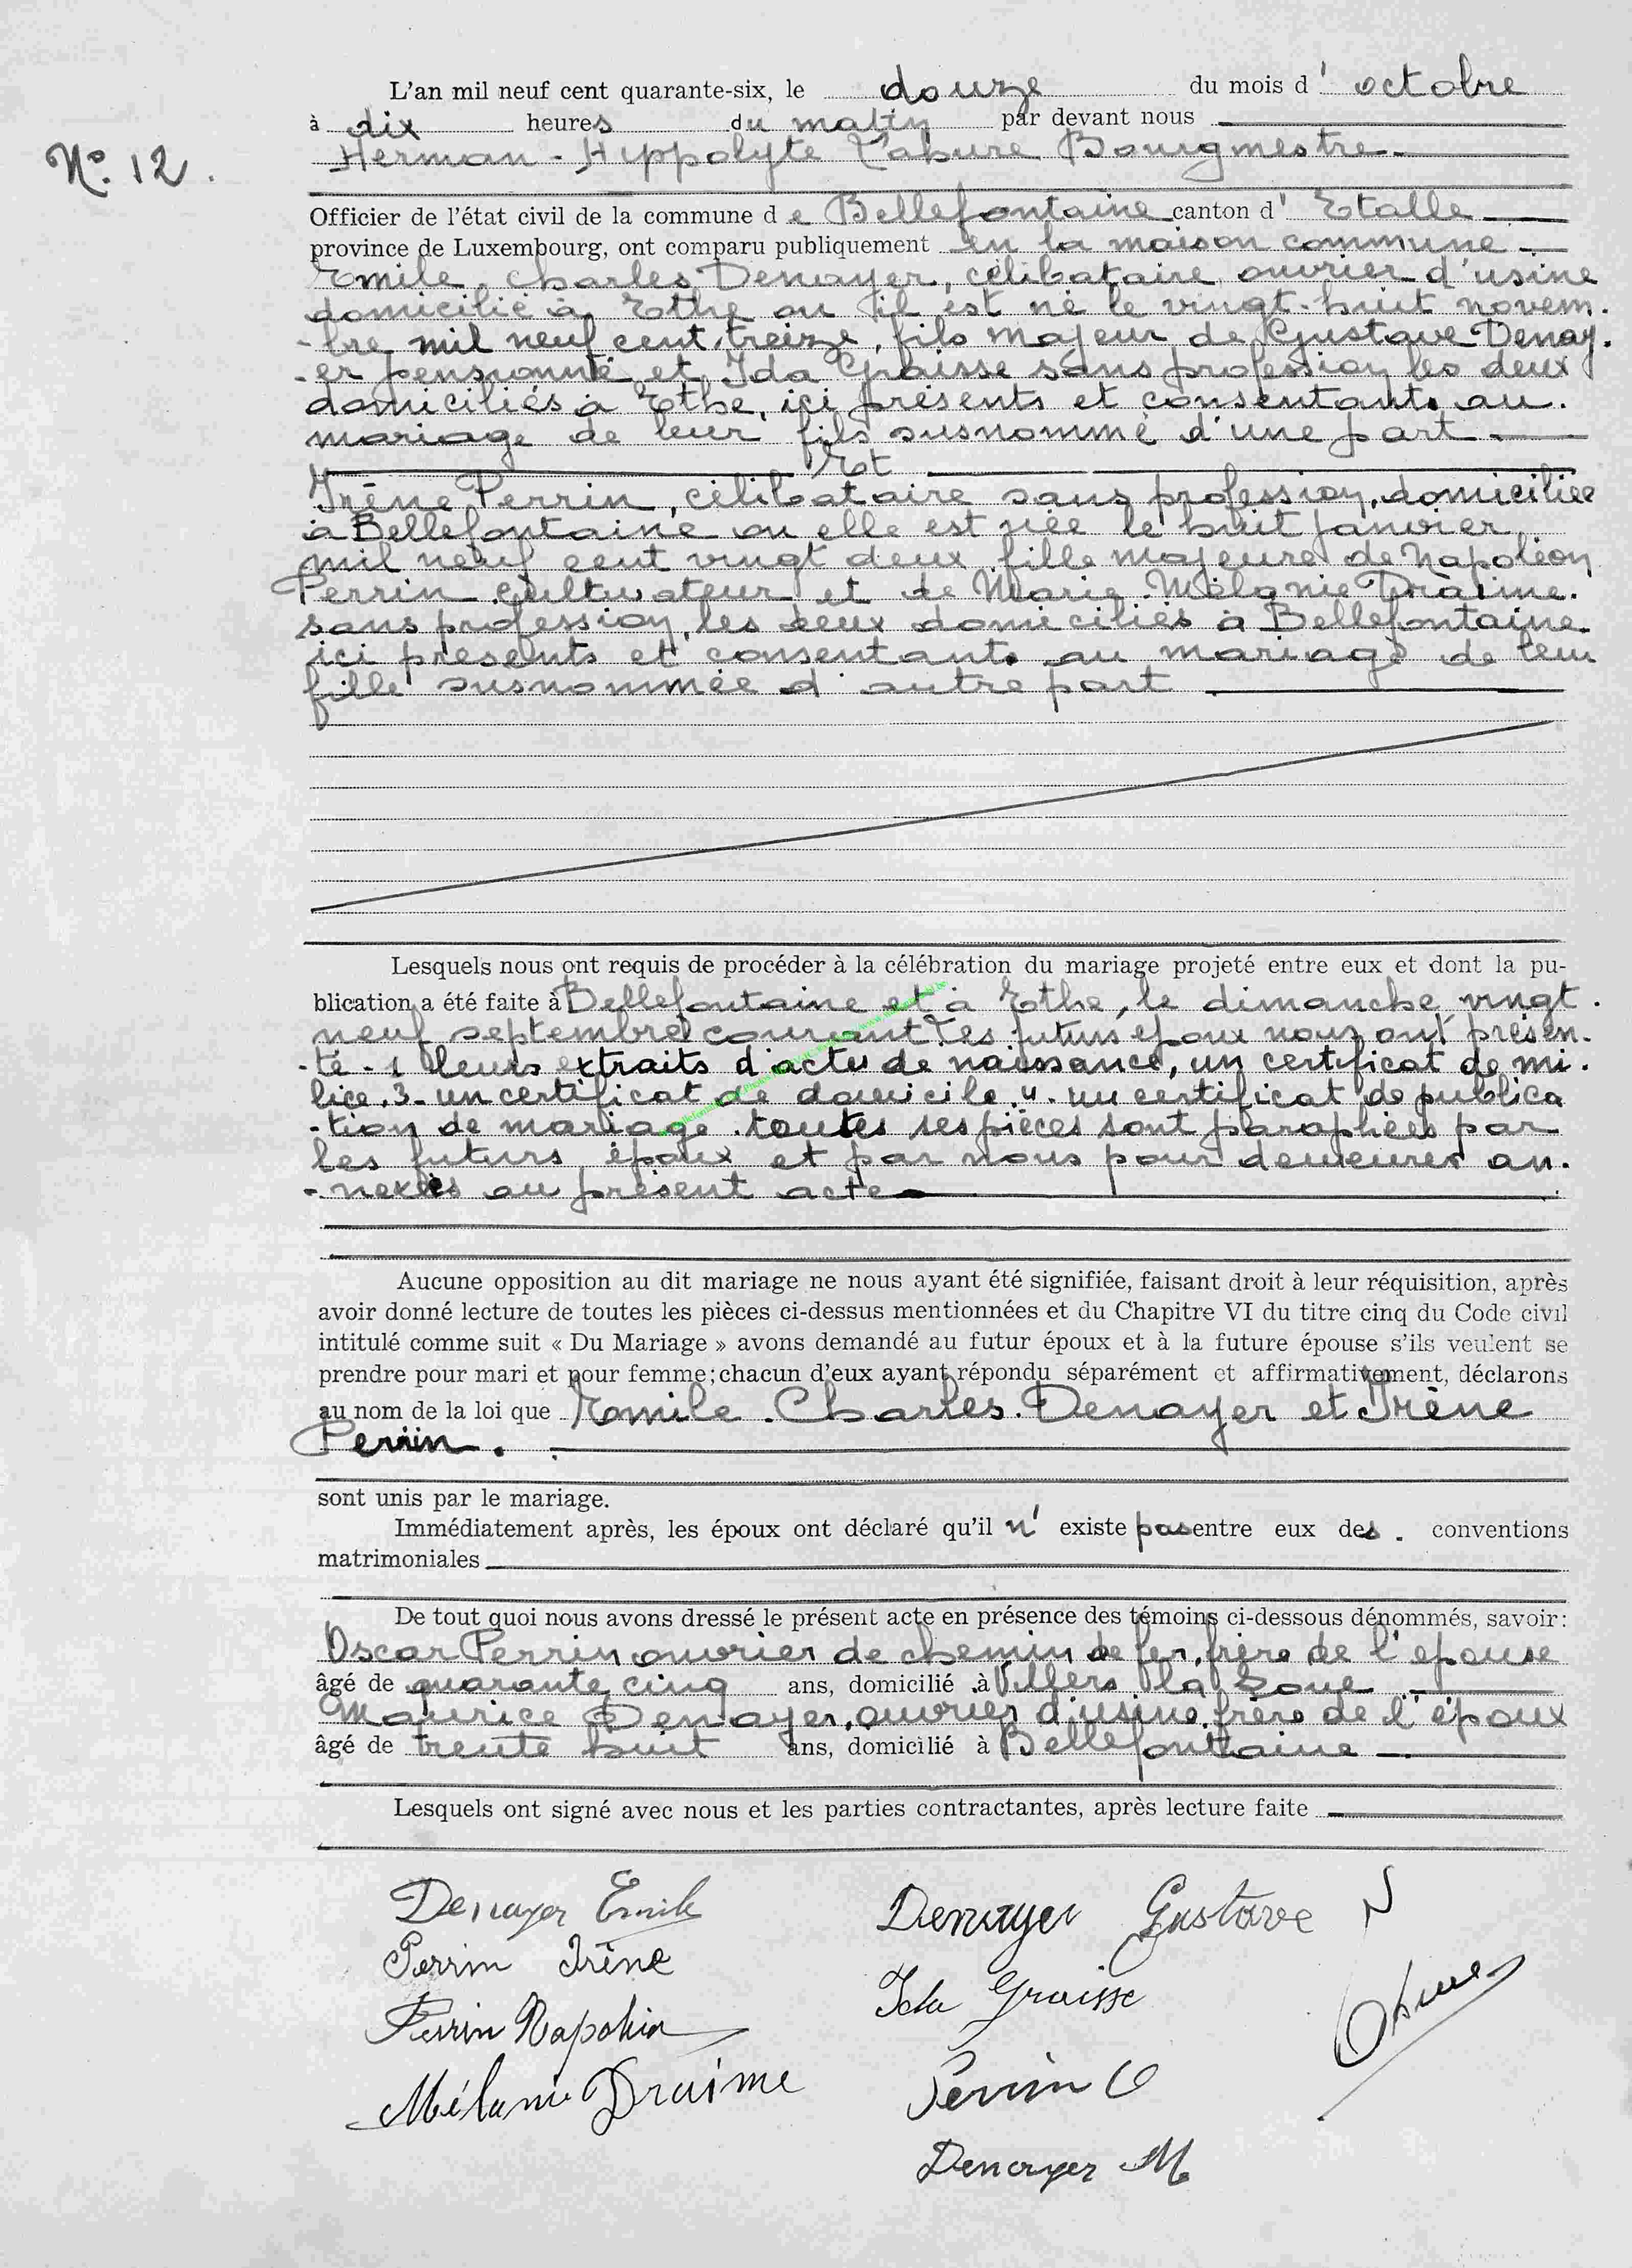 L'an mil neuf cent quarante-six, le douze du mois d' octobre
à dix heures du matin par devant nous
N° 12.
Herman - Hippolyte Bourgmestre
Officier de l'état civil de la commune de Bellefontaine canton d' Etalle
province de Luxembourg, ont comparu publiquement en la maison commune
Emile, Charles Denayer, célibataire ouvrier d'usine
domicilié à Ethe ou il est né le vingt-huit novem-
-bre mil neuf cent treize, fils majeur de Gustave Denay-
-er pensionné et Ida Graisse sans profession les deux
domiciliés à Ethe, ici présents et consentants au
mariage de leur fils susnommé d'une part
Et
Irène Perrin, célibataire sans profession, domiciliée
à Bellefontaine ou elle est née le huit janvier
mil neuf cent vingt deux fille majeure de Napoléon
Perrin cultivateur et de Marie Mélanie Draime.
sans profession, les deux domiciliés à Bellefontaine
ici présents et consentants au mariage de leur
fille susnommée d'autre part
Lesquels nous ont requis de procéder à la célébration du mariage projeté entre eux et dont la pu-
blication a été faite à Bellefontaine et à Ethe, le dimanche vingt
neuf septembre courant Les futurs époux nous ont présen-
-té - 1 leurs extraits d'actes de naissance, un certificat de mi-
lice. 3- un certificat de domicile. 4. un certificat de publica
-tion de mariage. toutes ses pièces sont paraphées par
les futurs époux et par nous pour demeurer an-
-nexées au présent acte
Aucune opposition au dit mariage ne nous ayant été signifiée, faisant droit à leur réquisition, après
avoir donné lecture de toutes les pièces ci-dessus mentionnées et du Chapitre VI du titre cinq du Code civil
intitulé comme suit « Du Mariage » avons demandé au futur époux et à la future épouse s'ils veulent se
prendre pour mari et pour femme; chacun d'eux ayant répondu séparément et affirmativement, déclarons
au nom de la loi que Emile. Charles. Denayer et Irène
Perrin.
sont unis par le mariage.
Immédiatement après, les époux ont déclaré qu'il n' existe pas entre eux des conventions
matrimoniales
De tout quoi nous avons dressé le présent acte en présence des témoins ci-dessous dénommés, savoir:
Oscar Perrin ouvrier de chemin de fer, frère de l'epouse
âgé de quarante cinq ans, domicilié à Villers la Loue
Maurice Denayer, ouvrier d'usine. frère de l'époux
âgé de trente huit ans, domicilié à Bellefontaine
Lesquels ont signé avec nous et les parties contractantes, après lecture faite
Denayer Emile Denayer Gustave N
Perrin Irène Ida Graisse
Perrin Napoléon
Mélanie Draime Perrin O
Denayer M